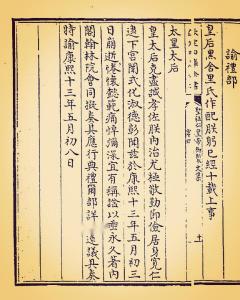 諭禮部
皇后黑舍里氏作配朕躬已經十載上事
太皇太后
皇太后克盡誠孝佐朕內治尤極敬勤節儉居身寬仁
逮下宮閫式化淑德彰聞茲於康熙十三年五月初三
日崩逝惓懷懿範痛悼彌深宜有稱諡以垂永久著內
閣翰林院會同擬奏其應行典禮爾部詳 速議具奏
時諭康熙十三年五月初八日